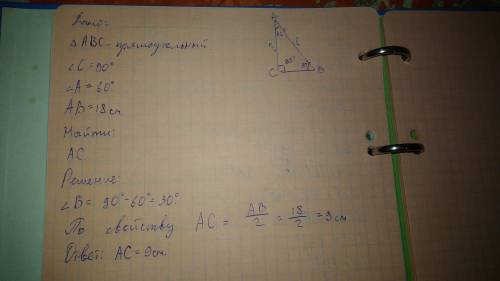 Дано:
△ABC - прямоугольный
∠C = 90°
∠A = 60°
AB = 18 см
Найти:
AC
Решение:
∠B = 90° - 60° = 30°.
По свойству AC = AB/2 = 18/2 = 9 см
Ответ: AC = 9 см.
60°
C 90° B